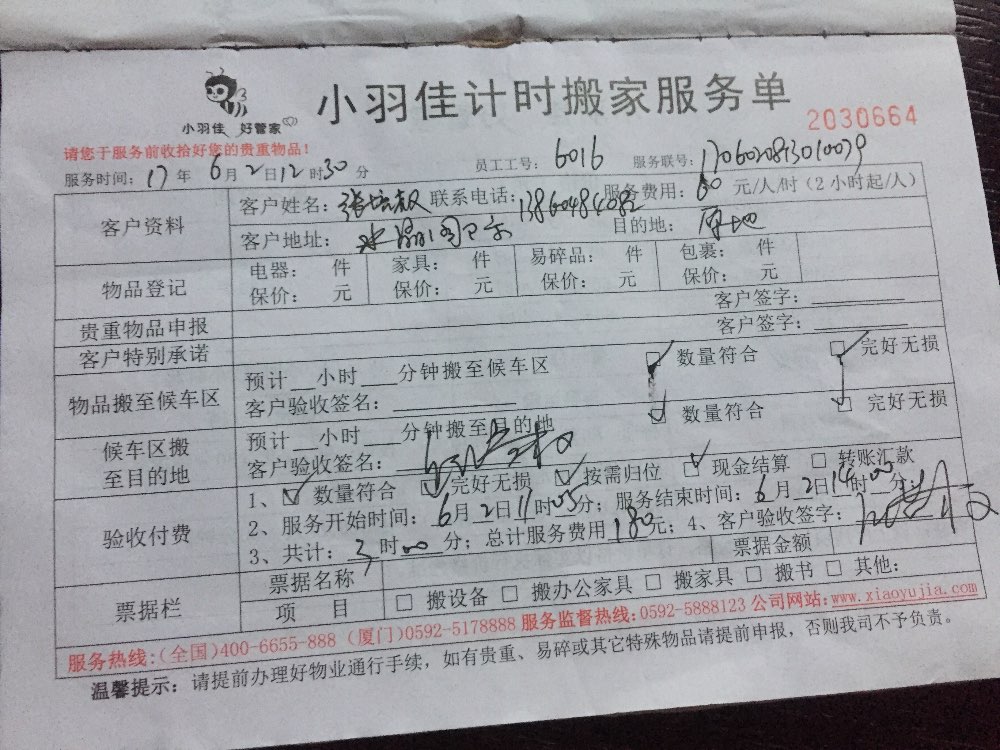 小羽佳计时搬家服务单
小羽佳 好管家
2030664
请您于服务前收拾好您的贵重物品！
服务时间：17年6月2日12时30分 员工工号：6016 服务联号：
客户资料
客户姓名：张 联系电话： 服务费用：60元/人/时（2小时起/人）
客户地址： 目的地：原地
物品登记
电器： 件 家具： 件 易碎品： 件 包裹： 件
保价： 元 保价： 元 保价： 元 保价： 元
贵重物品申报 客户签字：
客户特别承诺 客户签字：
物品搬至候车区
预计__小时___分钟搬至候车区 数量符合 完好无损
客户验收签名：
候车区搬至目的地
预计__小时___分钟搬至目的地 数量符合 完好无损
客户验收签名：
验收付费
1、数量符合 完好无损 按需归位 现金结算 转账汇款
2、服务开始时间：6月2日11时05分；服务结束时间：6月2日14时00分；
3、共计：3时00分；总计服务费用180元；4、客户验收签字：
票据栏
票据名称 票据金额
项 目 搬设备 搬办公家具 搬家具 搬书 其他:
服务热线:(全国)400-6655-888 (厦门)0592-5178888 服务监督热线:0592-5888123 公司网站:www.xiaoyujia.com
温馨提示：请提前办理好物业通行手续，如有贵重、易碎或其它特殊物品请提前申报，否则我司不予负责。